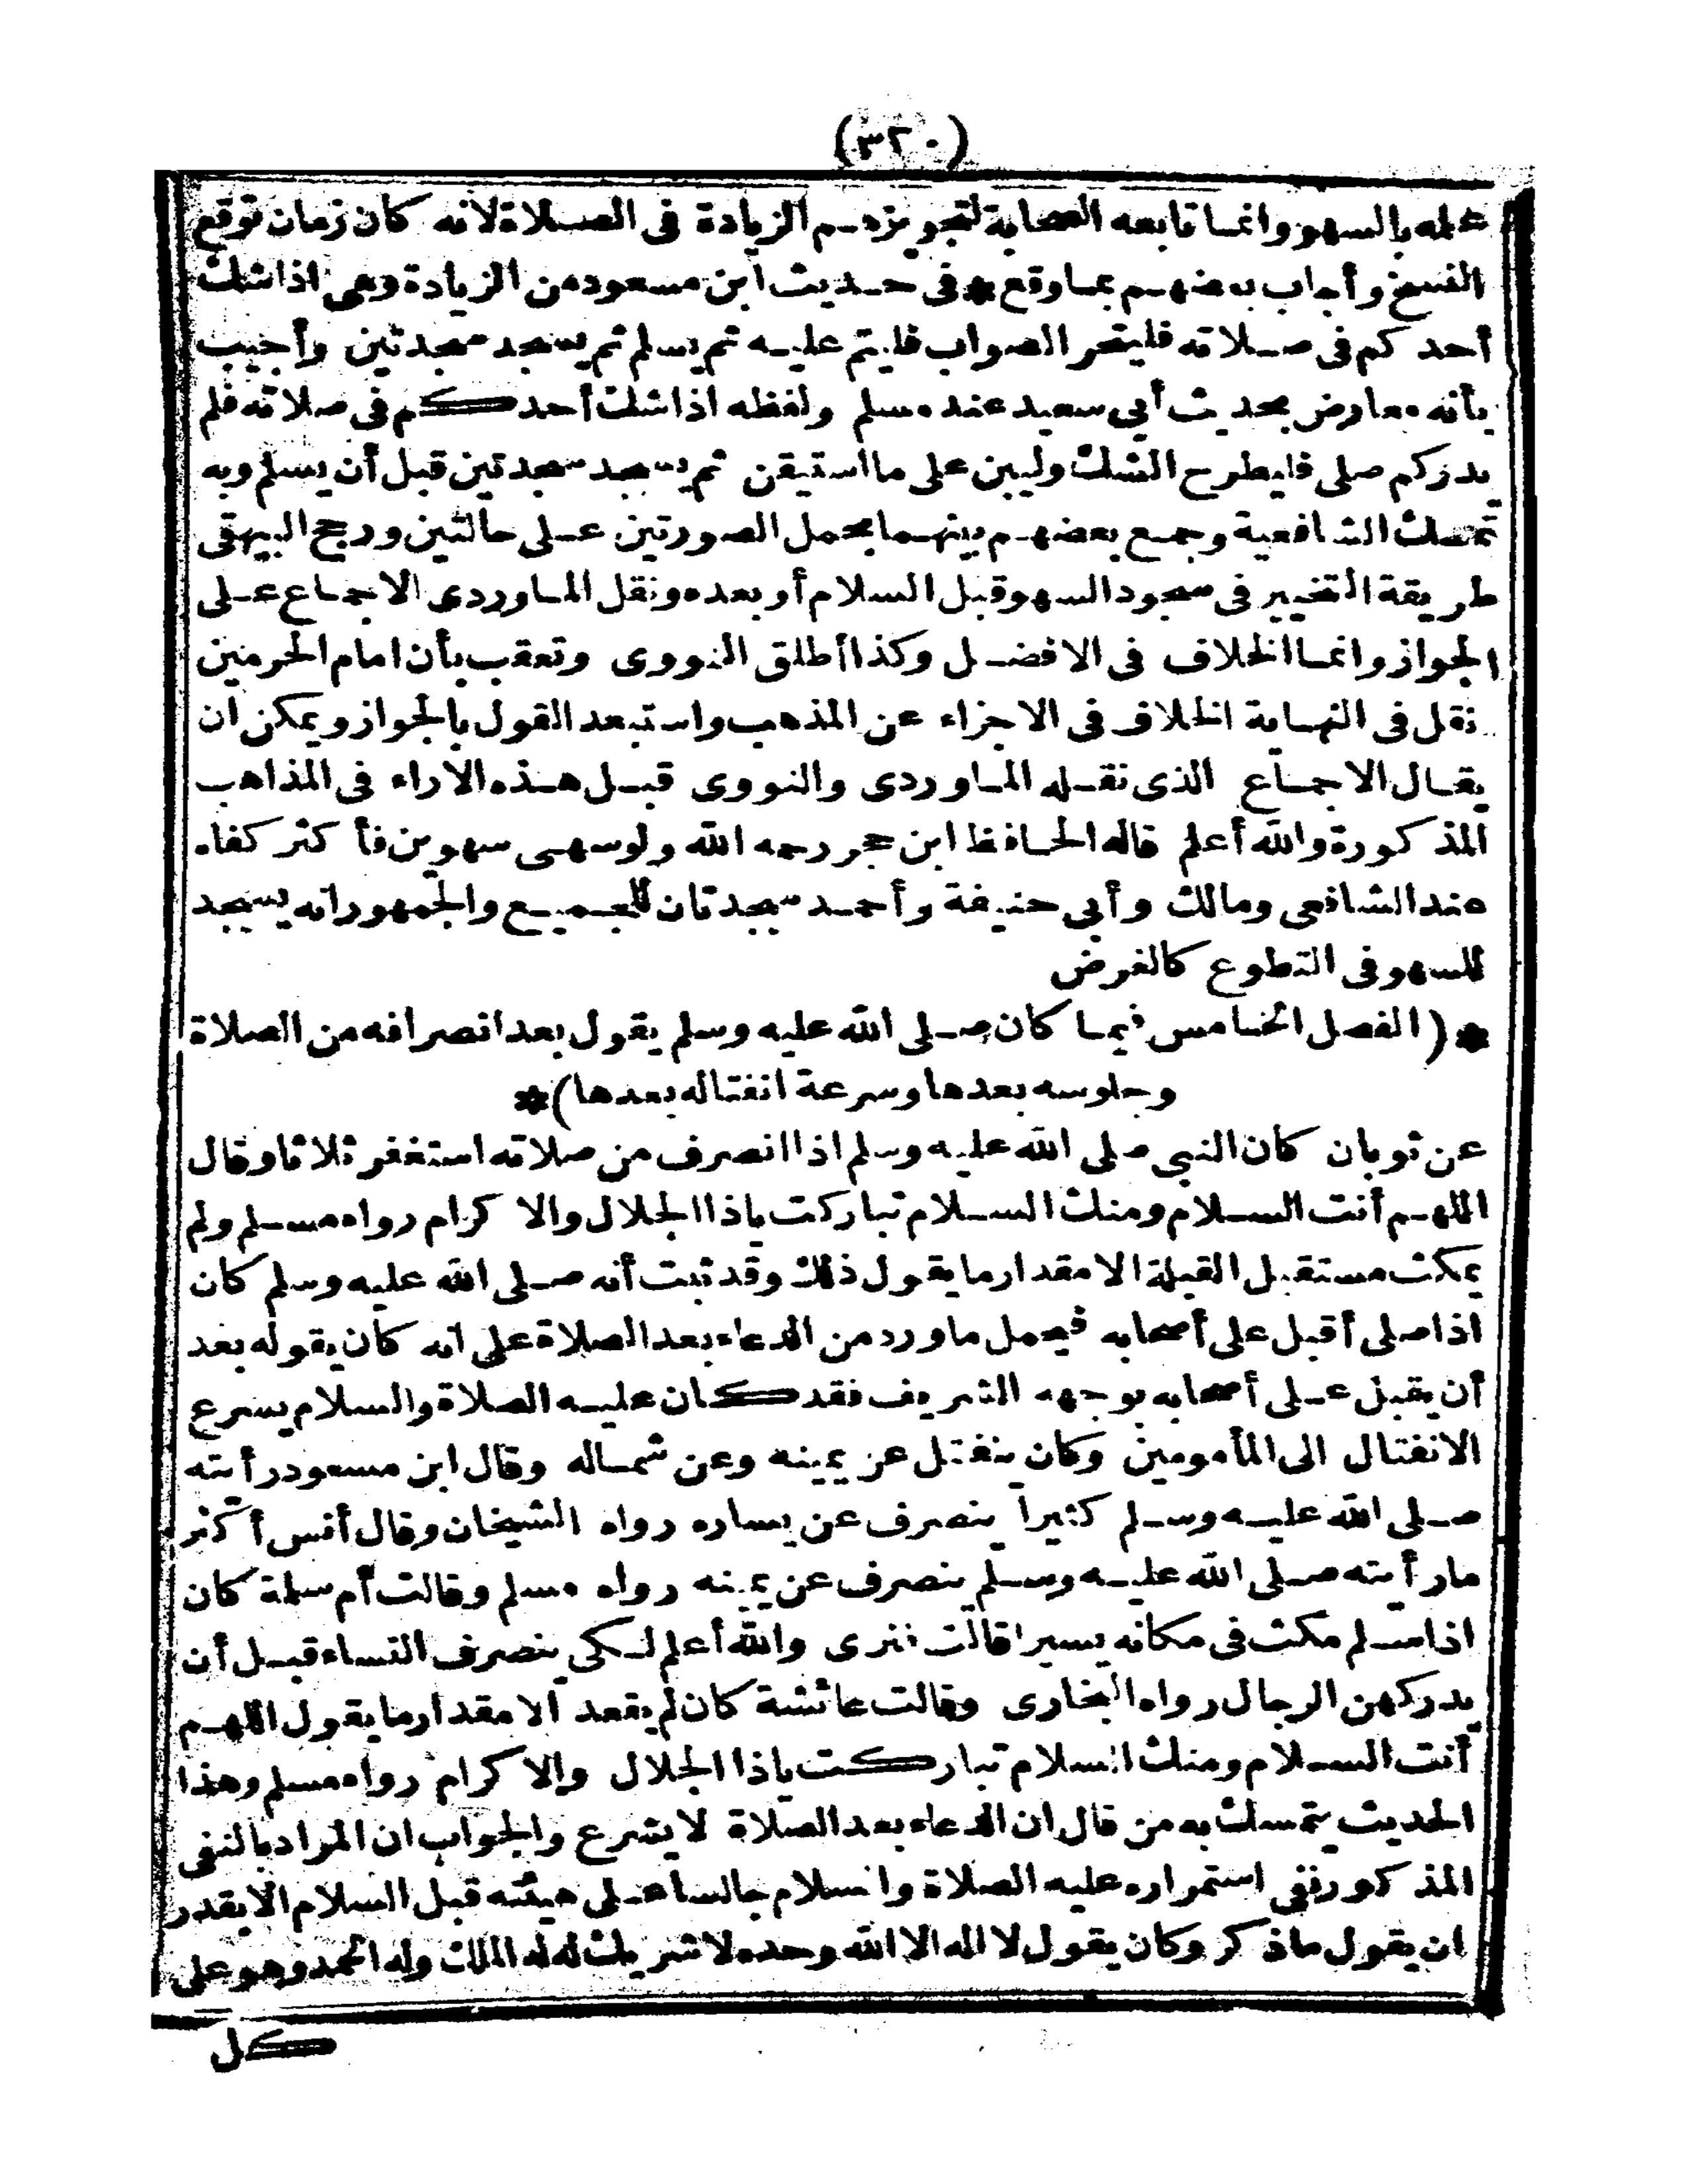 (٣٢٠)
عمله بالسهو وانما تابعه الصحابة لتجويزهم الزيادة فى الصلاة لانه كان زمان توقع
النسخ وأجاب بعضهم بما وقع * فى حديث ابن مسعود من الزيادة وهى اذا شك
أحدكم فى صلاته فليتحر الصواب فليتم عليه ثم يسلم ثم يسجد سجدتين وأجيب
بأنه معارض بحديث أبى سعيد عند مسلم ولفظه اذا شك أحدكم فى صلاته فلم
يدركم صلى فليطرح الشك وليبن على ما استيقن ثم يسجد سجدتين قبل أن يسلم وبه
تمسك الشافعية وجمع بعضهم بينهما بحمل الصورتين على حالتين ورجح البيهقى
طريقة التخيير فى سجود السهو قبل السلام أو بعده ونقل الماوردى الاجماع على
الجواز وانما الخلاف فى الافضل وكذا أطلق النووى وتعقب بأن امام الحرمين
نقل فى النهاية الخلاف فى الاجزاء عن المذهب واستبعد القول بالجواز ويمكن ان
يقال الاجماع الذى نقله الماوردى والنووى قبل هذه الاراء فى المذاهب
المذكورة والله أعلم قاله الحافظ ابن حجر رحمه الله ولو سهى سهوين فأكثر كفاه
عند الشافعى ومالك وأبى حنيفة وأحمد سجدتان للجميع والجمهور انه يسجد
للسهو فى التطوع كالفرض
* (الفصل الخامس فيما كان صلى الله عليه وسلم يقول بعد انصرافه من الصلاة
وجلوسه بعدها وسرعة انفتاله بعدها) *
عن ثوبان كان النبى صلى الله عليه وسلم اذا انصرف من صلاته استغفر ثلاثا وقال
اللهم أنت السلام ومنك السلام تباركت ياذا الجلال والاكرام رواه مسلم ولم
يمكث مستقبل القبلة الا مقدار ما يقول ذلك وقد ثبت أنه صلى الله عليه وسلم كان
اذا صلى أقبل على أصحابه فيحمل ما ورد من الدعاء بعد الصلاة على انه كان يقوله بعد
أن يقبل على أصحابه بوجهه الشريف فقد كان عليه الصلاة والسلام يسرع
الانفتال الى المأمومين وكان ينفتل عن يمينه وعن شماله وقال ابن مسعود رأيته
صلى الله عليه وسلم كثيراً ينصرف عن يساره رواه الشيخان وقال أنس أكثر
ما رأيته صلى الله عليه وسلم ينصرف عن يمينه رواه مسلم وقالت أم سلمة كان
اذا سلم مكث فى مكانه يسيرا قالت فنرى والله أعلم لكى ينصرف النساء قبل أن
يدركهن الرجال رواه البخارى وقالت عائشة كان لم يقعد الا مقدار ما يقول اللهم
أنت السلام ومنك السلام تباركت ياذا الجلال والاكرام رواه مسلم وهذا
الحديث يتمسك به من قال ان الدعاء بعد الصلاة لا يشرع والجواب ان المراد بالنفى
المذكور نفى استمراره عليه الصلاة والسلام جالسا على هيئته قبل السلام الا بقدر
ان يقول ماذكر وكان يقول لا اله الا الله وحده لا شريك له له الملك وله الحمد وهو على
كل